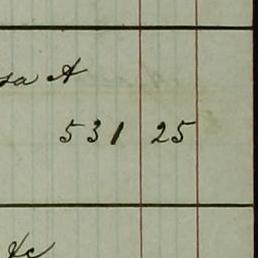 sa A
531 25
&c